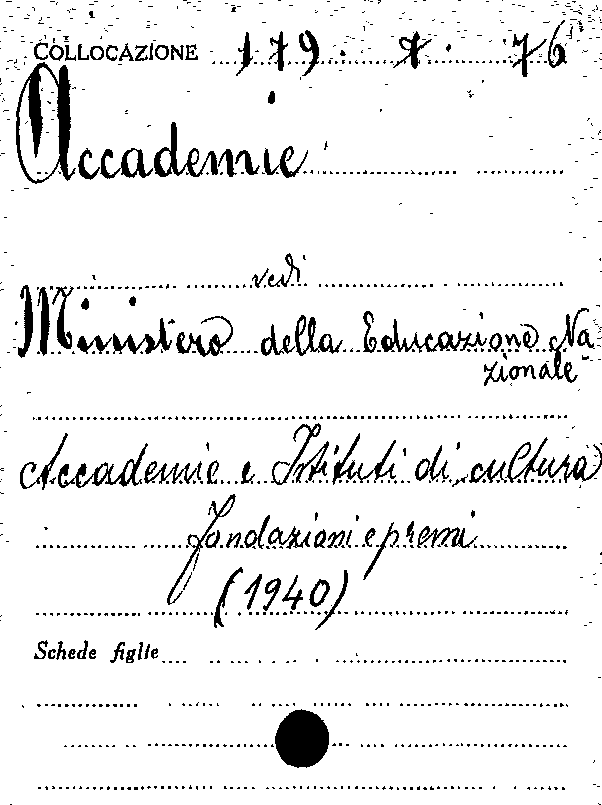 COLLOCAZIONE 179. 7. 76
Accademie
vedi
Ministero della Educazione Na
zionale
Accademie e Istituti di cultura
fondazioni e premi
(1940)
Schede figlie